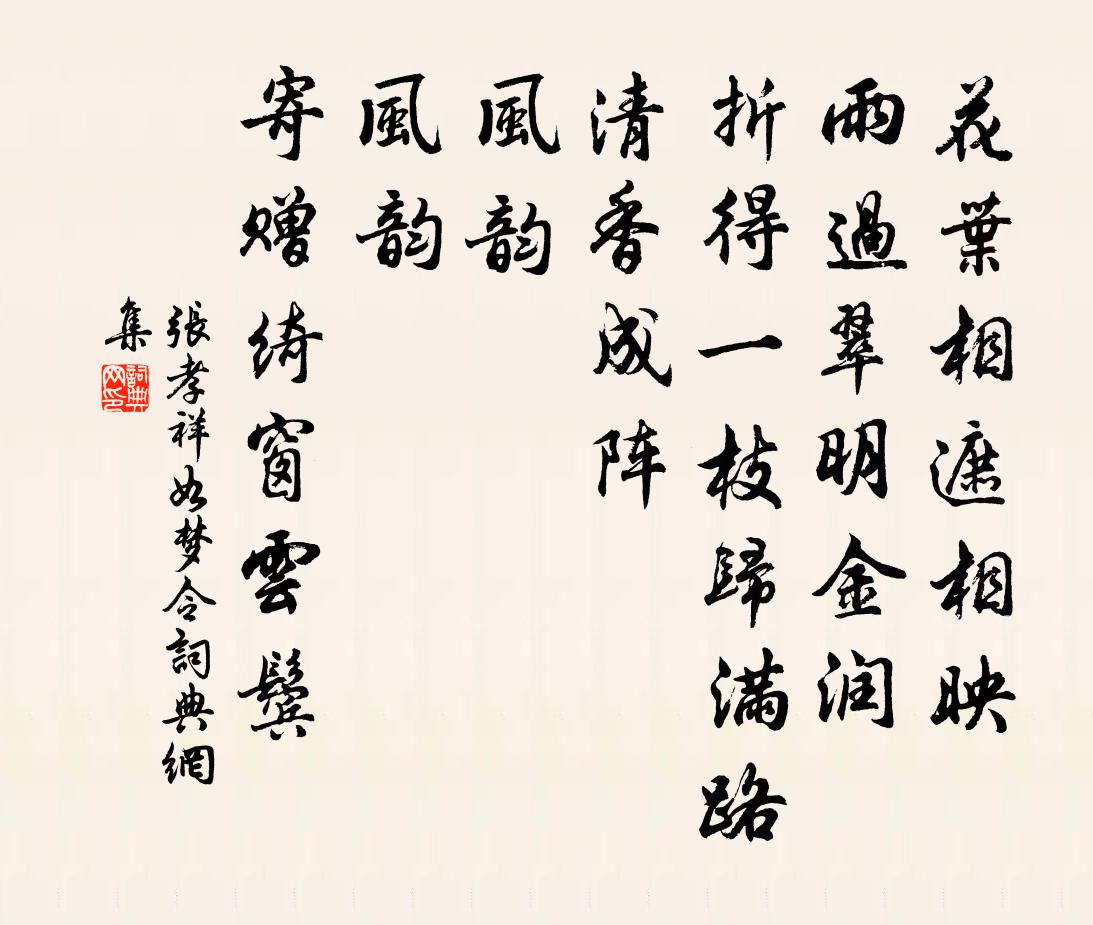 花葉相遮相映
雨過翠明金润
折得一枝歸满路
清香成阵
風韵
風韵
寄赠綺窗雲鬓
張孝祥如梦令詞典網
集
詞典网印